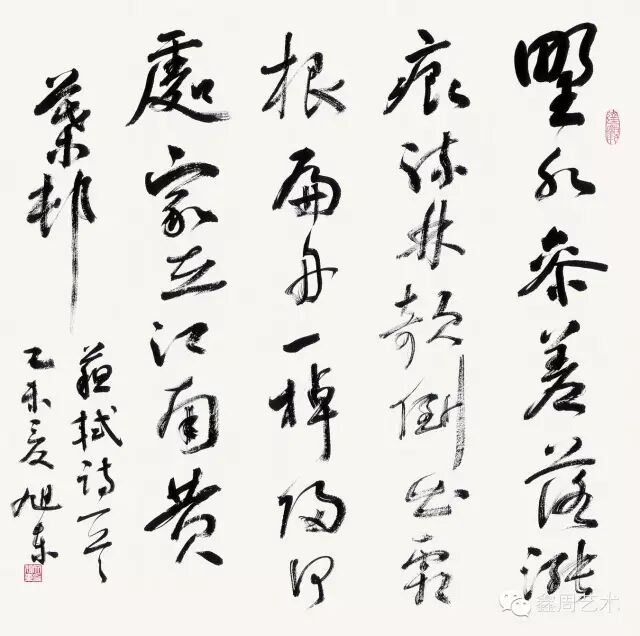 野水参差落漲
痕疏林欹倒出霜
根扁舟一棹歸何
處家在江南黄
葉邨
蘇軾詩一首
乙未夏旭東
鑫周艺术